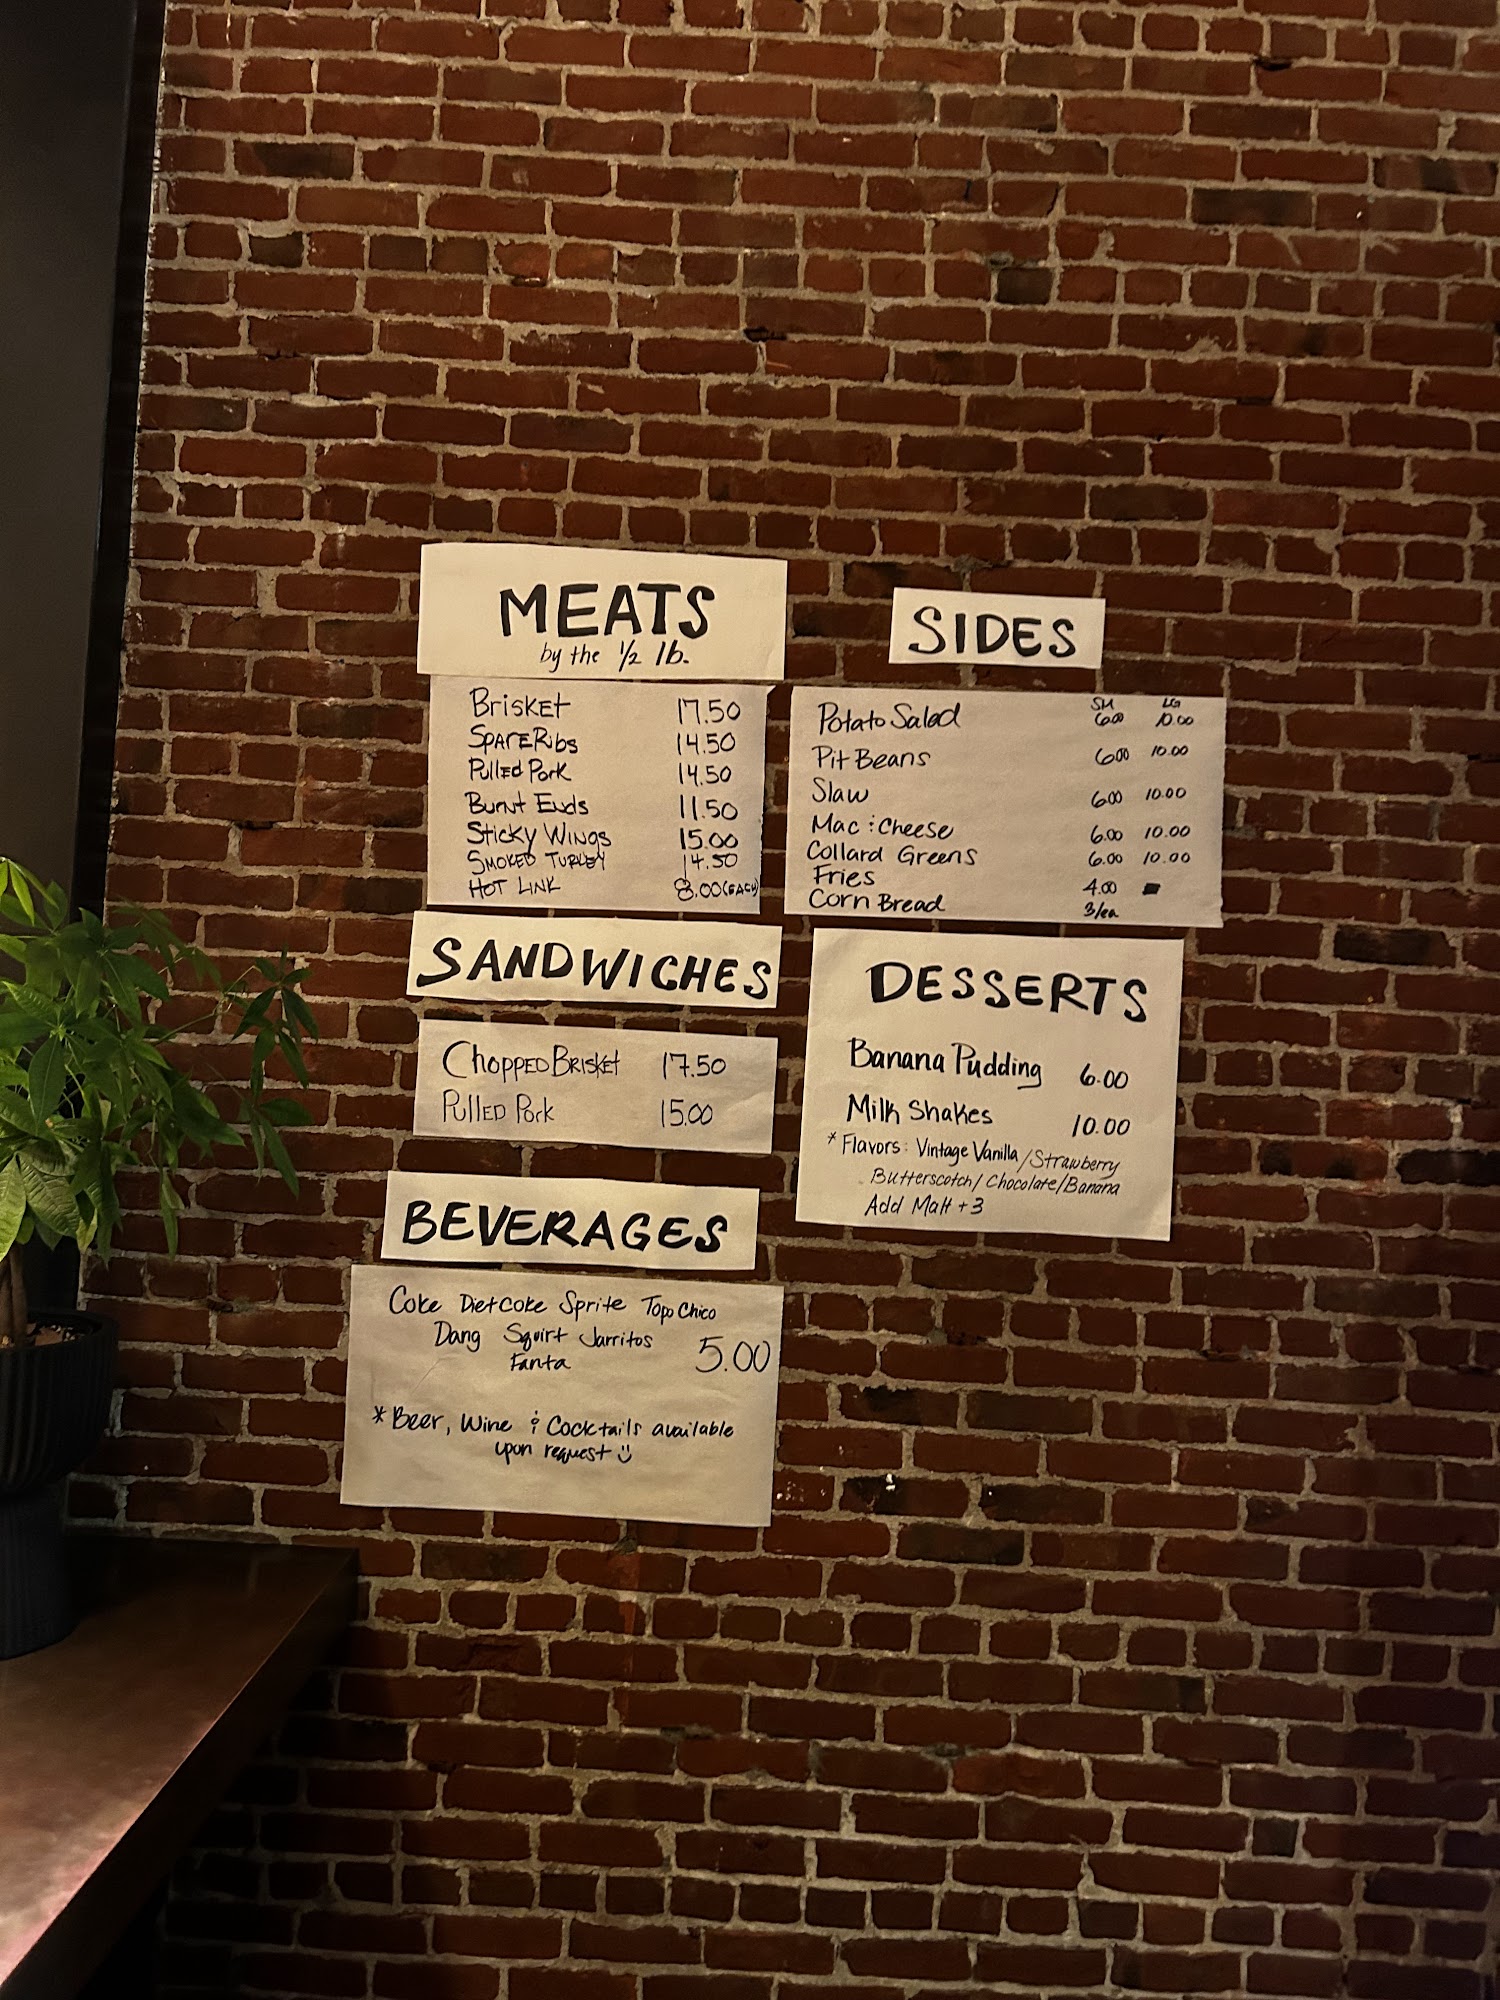 MEATS
by the 1/2 lb.
Brisket 17.50
Spare Ribs 14.50
Pulled Pork 14.50
Burnt Ends 11.50
Sticky Wings 15.00
Smoked Turkey 14.50
Hot Link 8.00 (EACH)
SANDWICHES
Chopped Brisket 17.50
Pulled Pork 15.00
BEVERAGES
Coke Diet Coke Sprite Topo Chico
Dang Squirt Jarritos
Fanta 5.00
* Beer, Wine & Cocktails available
upon request :)
SIDES
SM LG
Potato Salad 6.00 10.00
Pit Beans 6.00 10.00
Slaw 6.00 10.00
Mac & Cheese 6.00 10.00
Collard Greens 6.00 10.00
Fries 4.00
Corn Bread 3/ea
DESSERTS
Banana Pudding 6.00
Milk Shakes 10.00
* Flavors: Vintage Vanilla / Strawberry
Butterscotch / Chocolate / Banana
Add Malt +3